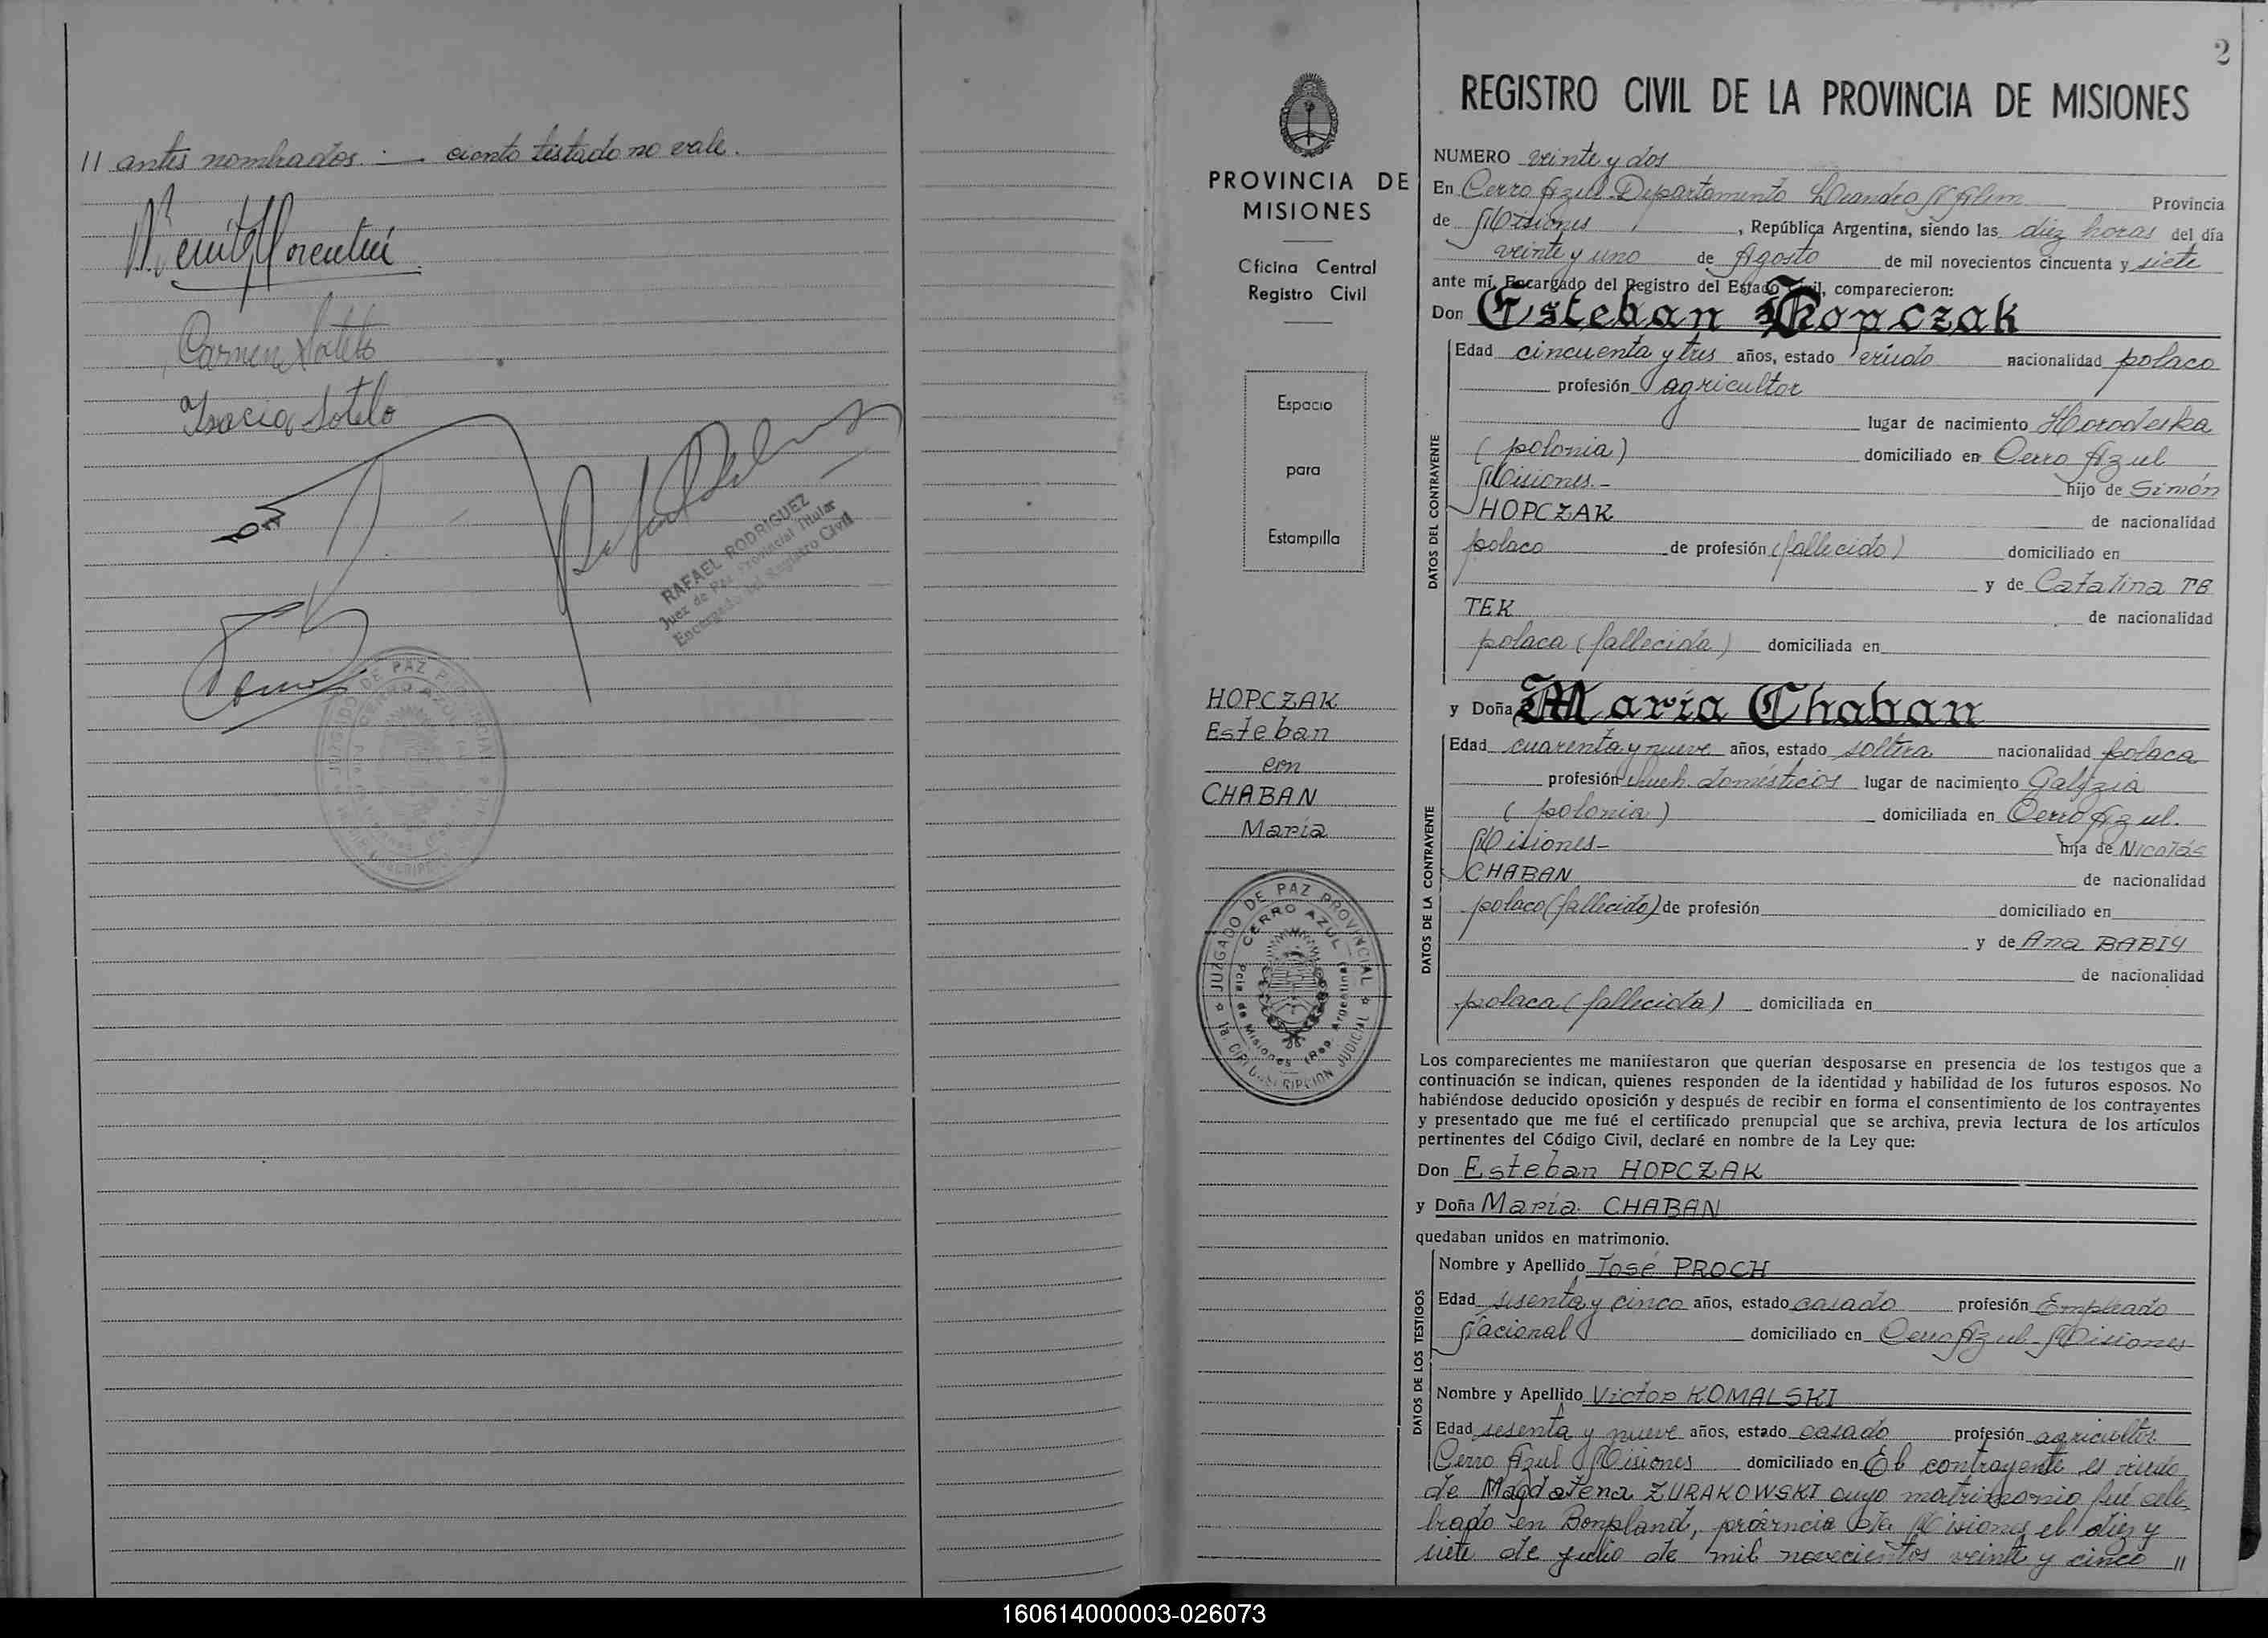 // antes nombrados. — ciento testado no vale.
Carmen Sotelo
Sotelo
RAFAEL RODRIGUEZ
Juez de Paz Provincial Titular
Encargado del Registro Civil
JUZGADO DE PAZ PROVINCIAL
CERRO AZUL
2
PROVINCIA DE
MISIONES
Oficina Central
Registro Civil
Espacio
para
Estampilla
HOPCZAK
Esteban
con
CHABAN
María
JUZGADO DE PAZ PROVINCIAL
CERRO AZUL
Pcia. de Misiones (Rep. Argentina)
1a. CIRCUNSCRIPCION JUDICIAL
REGISTRO CIVIL DE LA PROVINCIA DE MISIONES
NUMERO veinte y dos
En Cerro Azul-Departamento Leandro N Alem Provincia
de Misiones, República Argentina, siendo las diez horas del día
veinte y uno de Agosto de mil novecientos cincuenta y siete
ante mí, Encargado del Registro del Estado Civil, comparecieron:
Don Esteban Hopczak
DATOS DEL CONTRAYENTE
Edad cincuenta y tres años, estado viudo nacionalidad polaco
profesión agricultor
lugar de nacimiento Horodeska
(polonia) domiciliado en Cerro Azul
Misiones.- hijo de Simón
HOPCZAK de nacionalidad
polaco de profesión (fallecido) domiciliado en
y de Catalina TE
TEK de nacionalidad
polaca (fallecida) domiciliada en
y Doña María Chaban
DATOS DE LA CONTRAYENTE
Edad cuarenta y nueve años, estado soltera nacionalidad polaca
profesión domésticos lugar de nacimiento Galizia
(polonia) domiciliada en Cerro Azul.
Misiones- hija de Nicolás
CHABAN de nacionalidad
polaco (fallecido) de profesión domiciliado en
y de Ana BABIY
de nacionalidad
polaca (fallecida) domiciliada en
Los comparecientes me manifestaron que querían desposarse en presencia de los testigos que a
continuación se indican, quienes responden de la identidad y habilidad de los futuros esposos. No
habiéndose deducido oposición y después de recibir en forma el consentimiento de los contrayentes
y presentado que me fué el certificado prenupcial que se archiva, previa lectura de los artículos
pertinentes del Código Civil, declaré en nombre de la Ley que:
Don Esteban HOPCZAK
y Doña María CHABAN
quedaban unidos en matrimonio.
DATOS DE LOS TESTIGOS
Nombre y Apellido José PROCH
Edad sesenta y cinco años, estado casado profesión Empleado
Nacional domiciliado en Cerro Azul-Misiones
Nombre y Apellido Victor KOMALSKI
Edad sesenta y nueve años, estado casado profesión agricultor
Cerro Azul Misiones domiciliado en El contrayente es viudo
de Magdalena ZURAKOWSKI cuyo matrimonio fué cele
brado en Bonpland, provincia de Misiones el diez y
siete de julio de mil novecientos veinte y cinco //
160614000003-026073